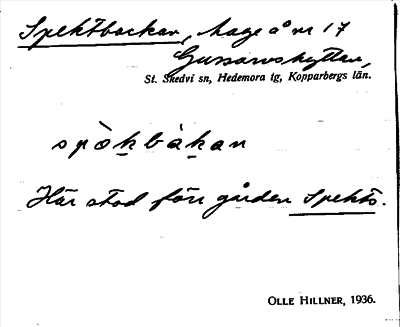 Spektbackan, hage å nr 17
Gussarvshyttan,
St. Skedvi sn, Hedemora tg, Kopparbergs län.
spòḵbàḵan
Här stod förr gården Spekts.
OLLE HILLNER, 1936.